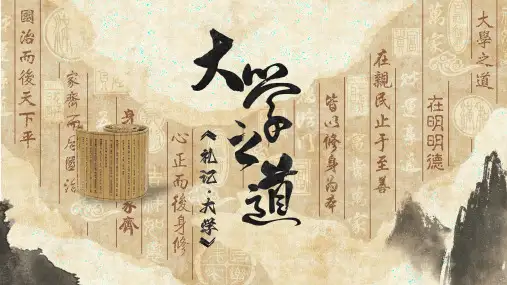 大學之道
在明明德
在親民止于至善
皆以修身为本
大学之道
《礼记·大学》
心正而後身修
身 家齊
家齊而后國治
國治而後天下平